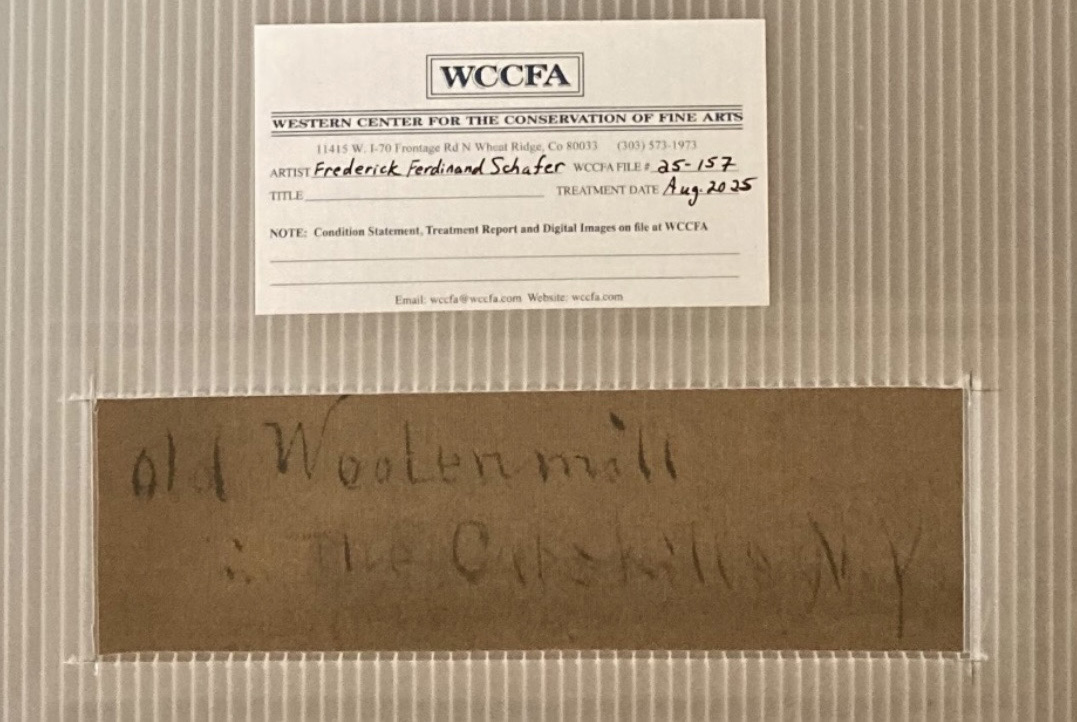 WCCFA
WESTERN CENTER FOR THE CONSERVATION OF FINE ARTS
11415 W. I-70 Frontage Rd N Wheat Ridge, Co 80033 (303) 573-1973
ARTIST Frederick Ferdinand Schafer WCCFA FILE # 25-157
TITLE TREATMENT DATE Aug. 2025
NOTE: Condition Statement, Treatment Report and Digital Images on file at WCCFA
Email: wccfa@wccfa.com Website: wccfa.com
old Woolen mill
The Catskills N.Y